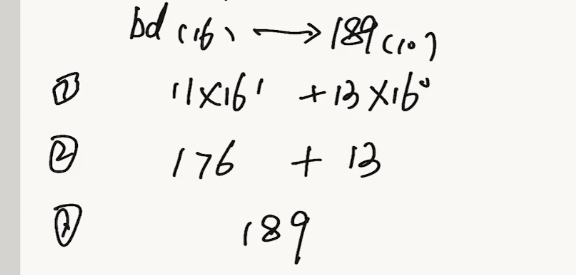 bd (16) → 189 (10)
① 11×16¹ + 13×16⁰
② 176 + 13
③ 189